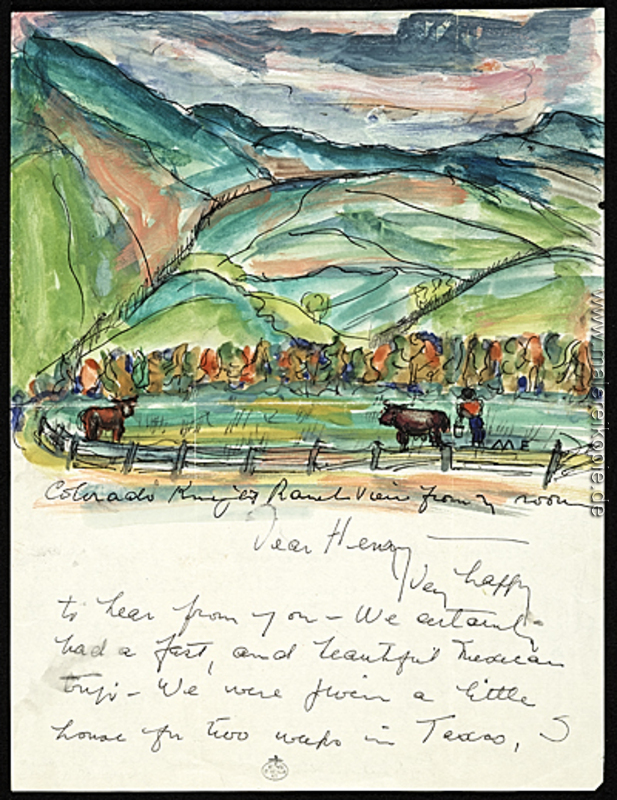 ME
Colorado Ranch View from my room
Dear Henry —
Very happy
to hear from you – We certainly
had a fast, and beautiful Mexican
trip – We were given a little
house for two weeks in Texas, S
www.malereikopie.de